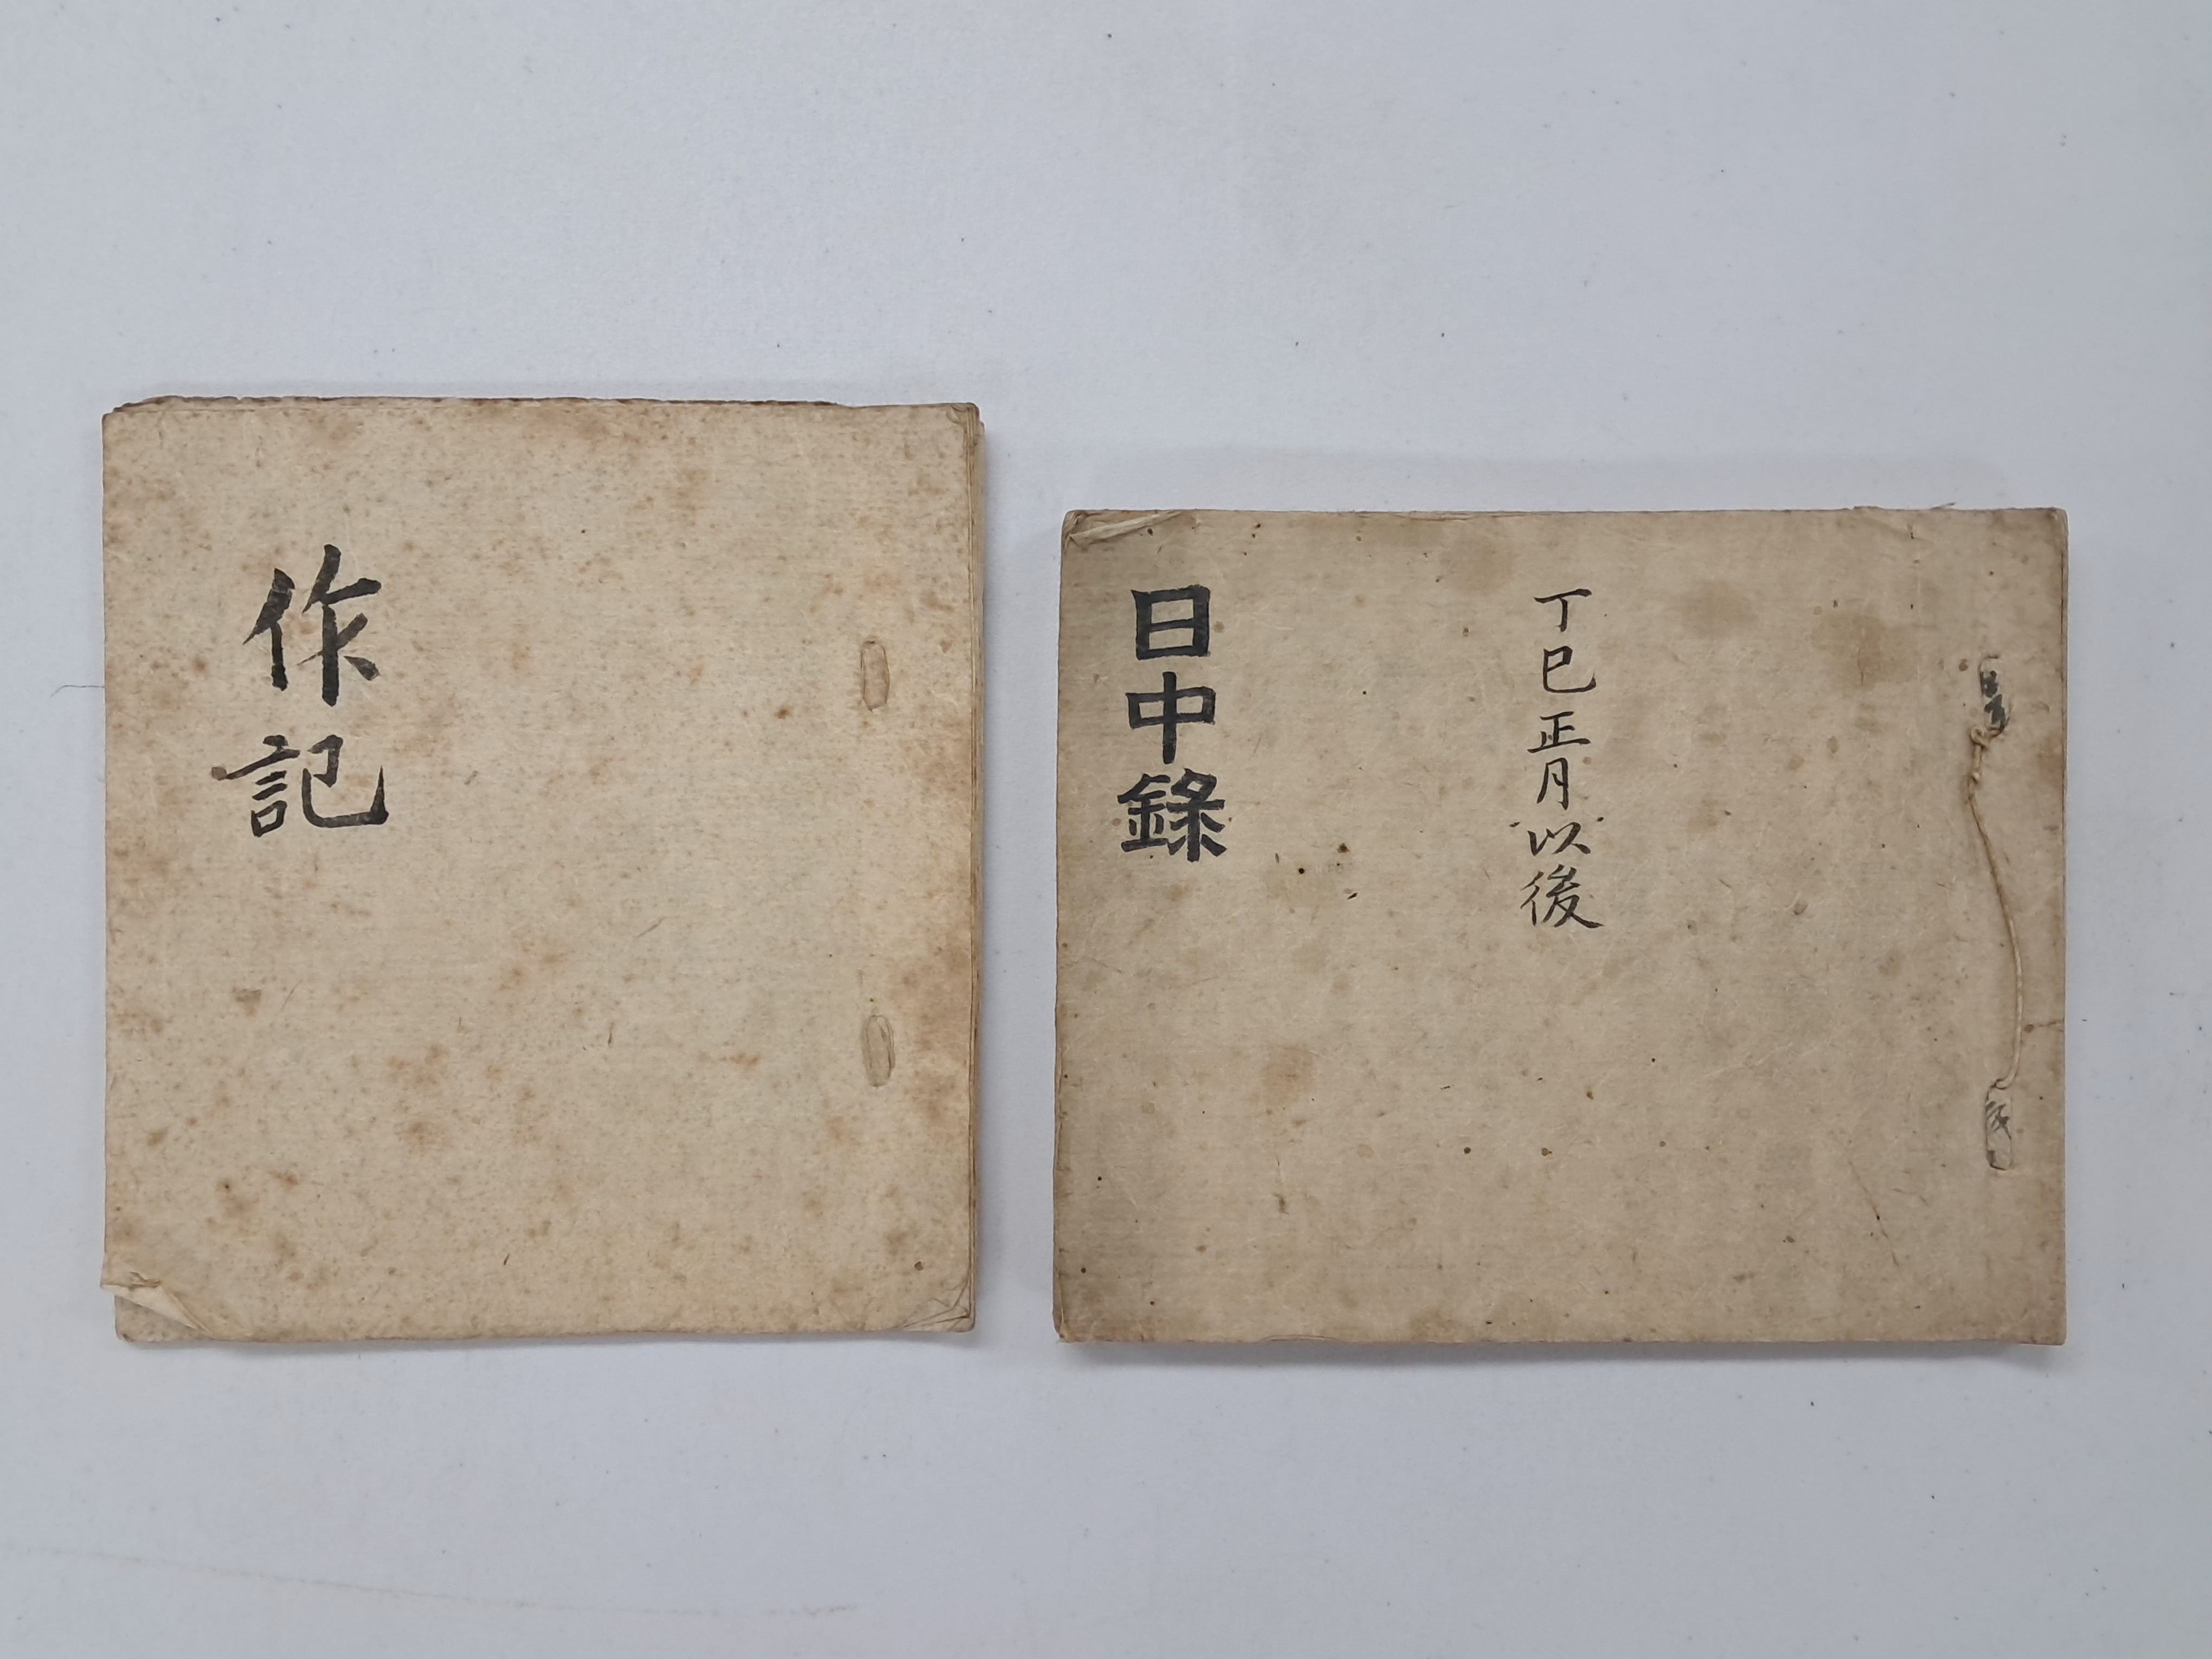 作記
丁巳正月以後
日中錄